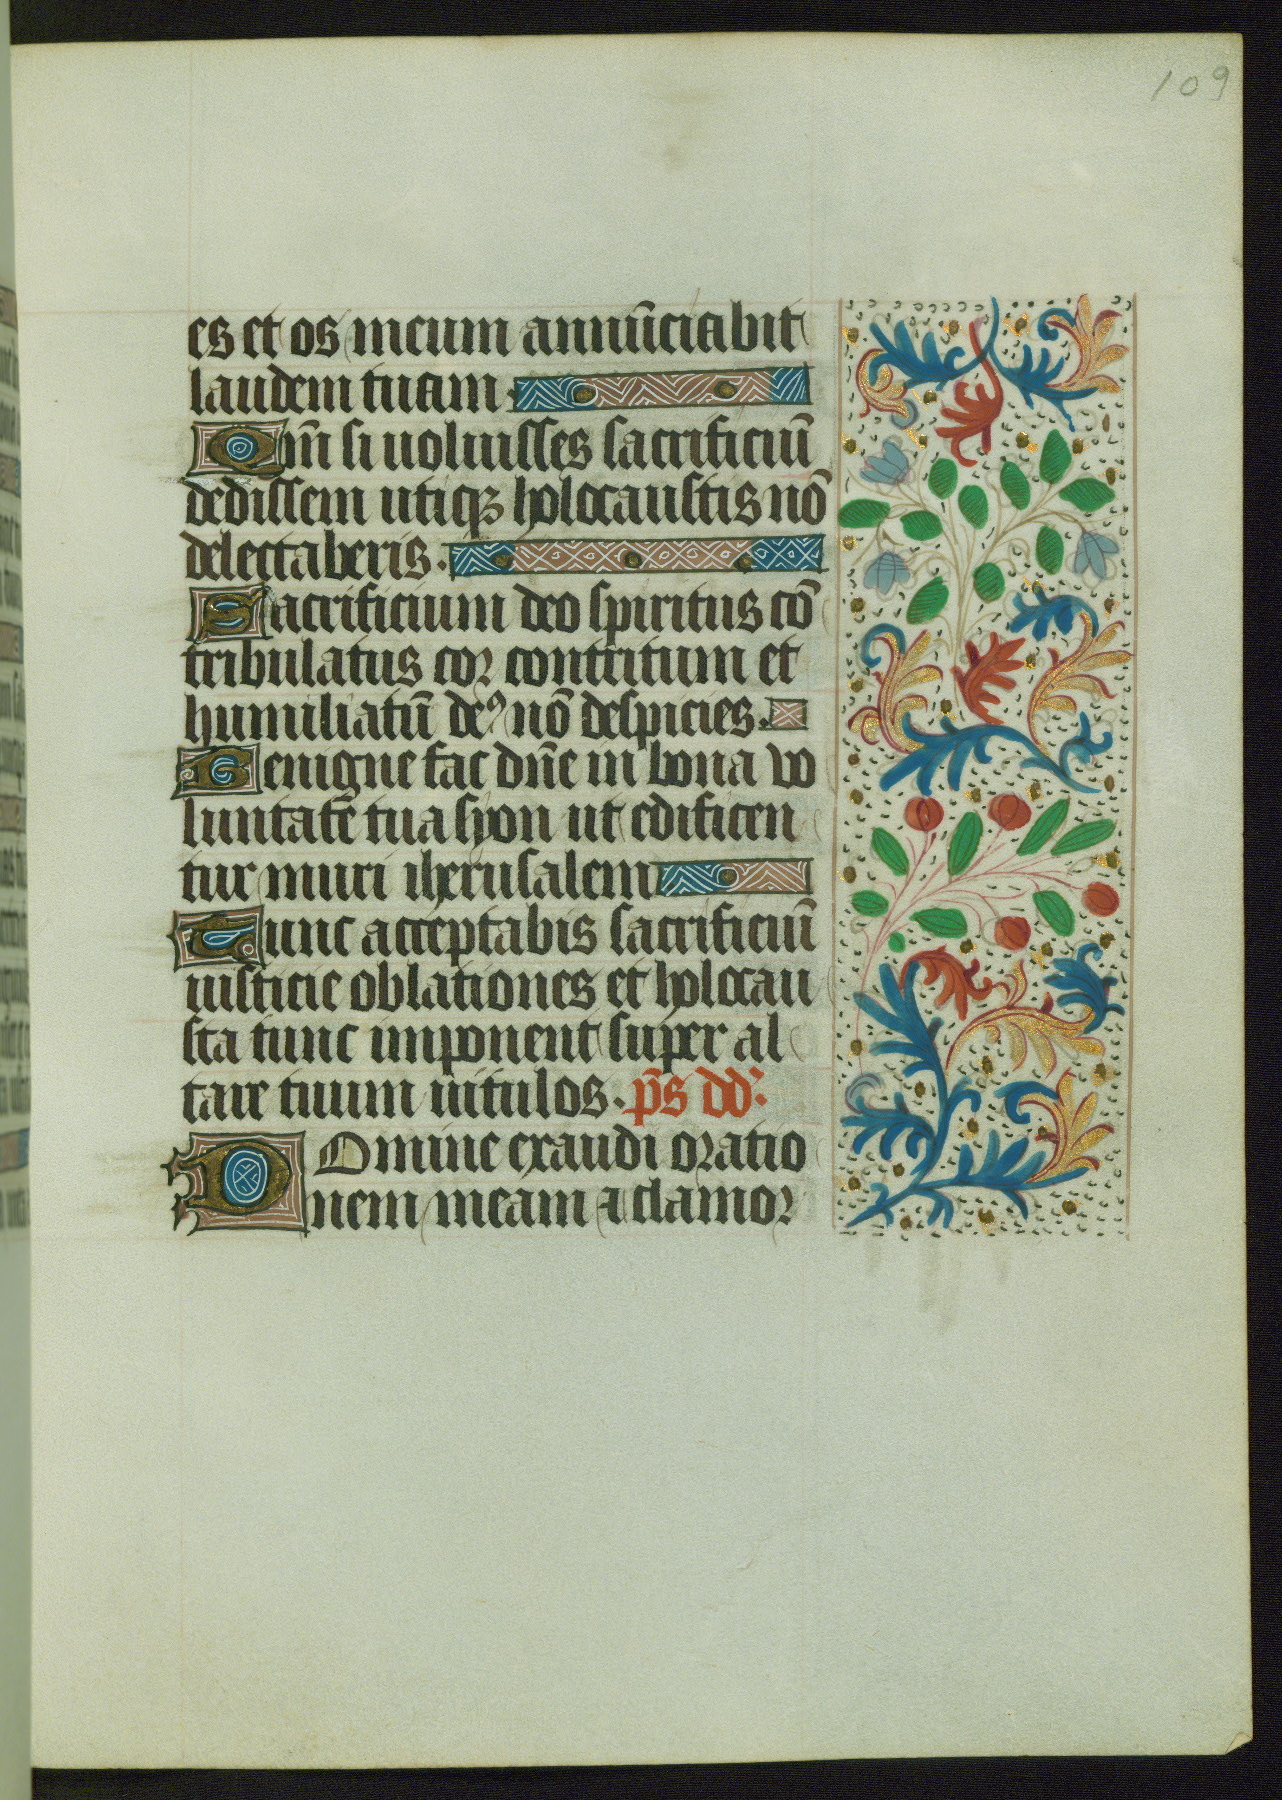 109
es et os meum annūciabit
laudem tuam.
Qm̄ si uoluisses sacrificiū
dedissem utiqꝫ holocaustis nō
delectaberis.
Sacrificium deo spiritus cō
tribulatus cor contritum et
humiliatū deꝰ nō despicies.
Benigne fac dn̄e in bona vo
luntate tua syon ut edificen
tur muri iherusalem
Tunc acceptabis sacrificiū
iusticie oblationes et holocau
sta tunc imponent super al
tare tuum uitulos. p̄s dd̾.
Domine exaudi oratio
nem meam a clamor